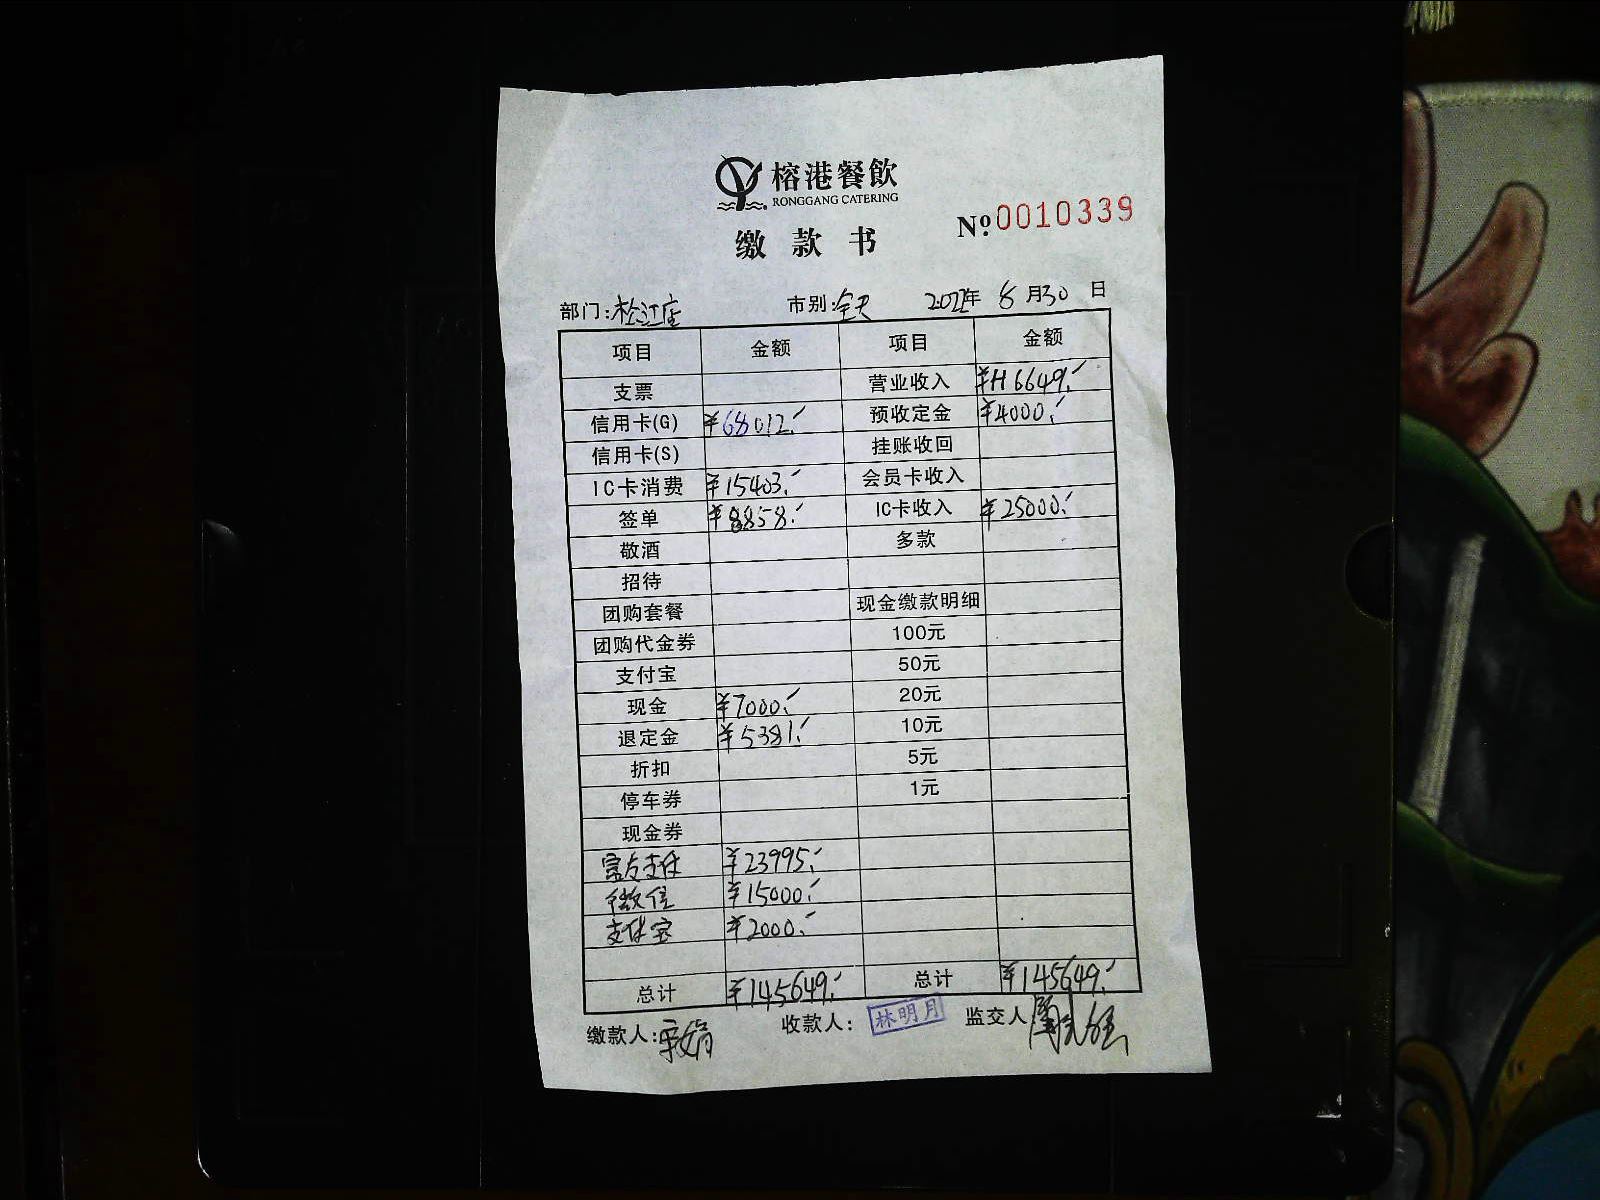 榕港餐飲
RONGGANG CATERING
缴款书
№ 0010339
部门:松江店 市别:全天 2022年 8月30日
项目 金额 项目 金额
支票 营业收入 ¥116649.-
信用卡(G) ¥68012.- 预收定金 ¥4000.-
信用卡(S) 挂账收回
IC卡消费 ¥15403.- 会员卡收入
签单 ¥8858.- IC卡收入 ¥25000.-
敬酒 多款
招待
团购套餐 现金缴款明细
团购代金券 100元
支付宝 50元
现金 ¥7000.- 20元
退定金 ¥5381.- 10元
折扣 5元
停车券 1元
现金券
富友支付 ¥23995.-
微信 ¥15000.-
支付宝 ¥2000.-
总计 ¥145649.- 总计 ¥145649.-
缴款人: 收款人: 林明月 监交人